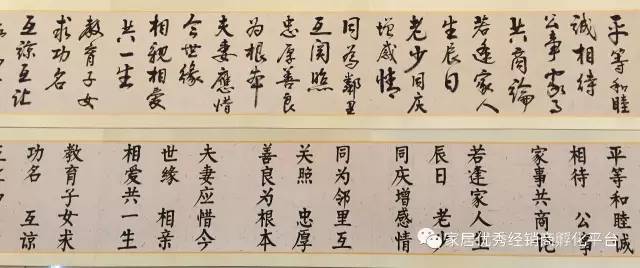 平等和睦
誠相待
公事家事
共商論
若逢家人
生辰日
老少同庆
增感情
同為鄰里
互関照
忠厚善良
為根本
夫妻應惜
今世缘
相親相愛
共一生
教育子女
求功名
互諒互让
平等和睦诚
相待 公事
家事共商论
若逢家人生
辰日 老少
同庆增感情
同为邻里互
关照 忠厚
善良为根本
夫妻应惜今
世缘 相亲
相爱共一生
教育子女求
功名 互谅
家居优秀经销商孵化平台